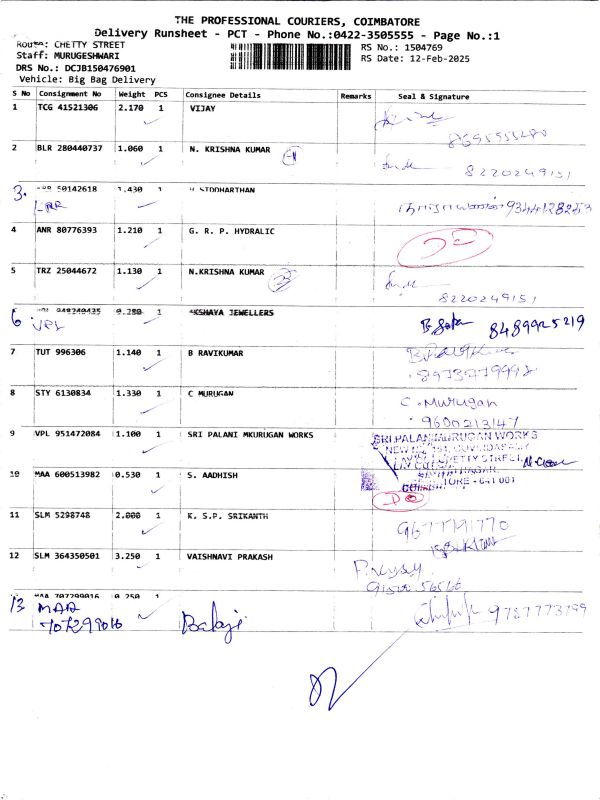 THE PROFESSIONAL COURIERS, COIMBATORE
Delivery Runsheet - PCT - Phone No.:0422-3505555 - Page No.:1
Route: CHETTY STREET
RS No.: 1504769
Staff: MURUGESHWARI
RS Date: 12-Feb-2025
DRS No.: DCJB150476901
Vehicle: Big Bag Delivery
S No Consignment No Weight PCS Consignee Details Remarks Seal & Signature
1 TCG 41521306 2.170 1 VIJAY
2 BLR 280440737 1.060 1 N. KRISHNA KUMAR
8220249151
3. 50142618 1.430 1 SIDDHARTHAN
LRR
4 ANR 80776393 1.210 1 G. R. P. HYDRALIC
5 TRZ 25044672 1.130 1 N.KRISHNA KUMAR
8220249151
6 1 AKSHAYA JEWELLERS
8489925219
7 TUT 996306 1.140 1 B RAVIKUMAR
8 STY 6130834 1.330 1 C MURUGAN
C. Murugan
9600213147
9 VPL 951472084 1.100 1 SRI PALANI MKURUGAN WORKS
SRI PALANI MURUGAN WORKS
CHETTY STREET,
10 MAA 600513982 0.530 1 S. AADHISH
641 001
11 SLM 5298748 2.000 1 K. S.P. SRIKANTH
12 SLM 364350501 3.250 1 VAISHNAVI PRAKASH
13 MAA 707299016 0.250 1
MAA
707299016 Balaji
9787773799